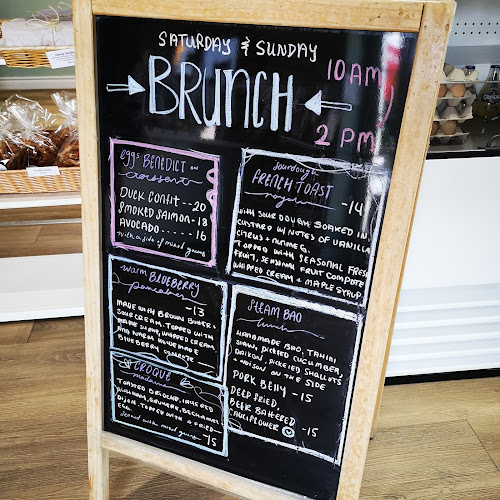 SATURDAY & SUNDAY
BRUNCH
10 AM
2 PM
eggs BENEDICT on
croissant
DUCK CONFIT -- 20
SMOKED SALMON - 18
AVOCADO ..... - 16
with a side of mixed greens
sourdough
FRENCH TOAST
- 14
WITH SOURDOUGH SOAKED IN
CUSTARD W/ NOTES OF VANILLA
CITRUS + NUTMEG.
TOPPED WITH SEASONAL FRESH
FRUIT, SEASONAL FRUIT COMPOTE
WHIPPED CREAM + MAPLE SYRUP
warm BLUEBERRY
pancakes
- 13
MADE WITH BROWN BUTTER +
SOUR CREAM. TOPPED WITH
WHIPPED CREAM
AND WARM HOMEMADE
BLUEBERRY COMPOTE
STEAM BAO
lunch
HANDMADE BAO, TAHINI
SLAW, PICKLED CUCUMBER,
DAIKON, PICKLED SHALLOTS
ON THE SIDE
PORK BELLY - 15
DEEP FRIED
BEER BATTERED
CAULIFLOWER - 15
CROQUE
madame
TOASTED BRIOCHE, LAYERED
GRUYERE, BECHAMEL
DIJON, TOPPED WITH A FRIED
EGG.
served with mixed greens
- 15